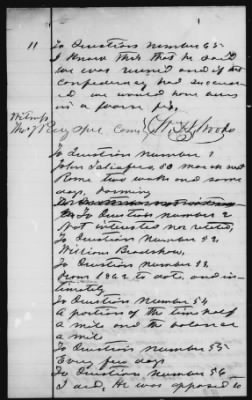 11 To Question number 65
I know this that he said
he was ruined and if the
confederacy had succeeded
we would have been
in a poor fix,
Witness
Spec Com
To Question number 1
John 60 years next
two weeks and some
days, farming
To Question number 2
Not interested nor related,
To Question number 52,
William Bradshaw,
To Question number 53,
From 1862 to date, and in-
timately
To Question number 54
A portion of the time half
a mile and the balance
a mile
To Question number 55
Every few days
To Question number 56
I did, He was opposed to